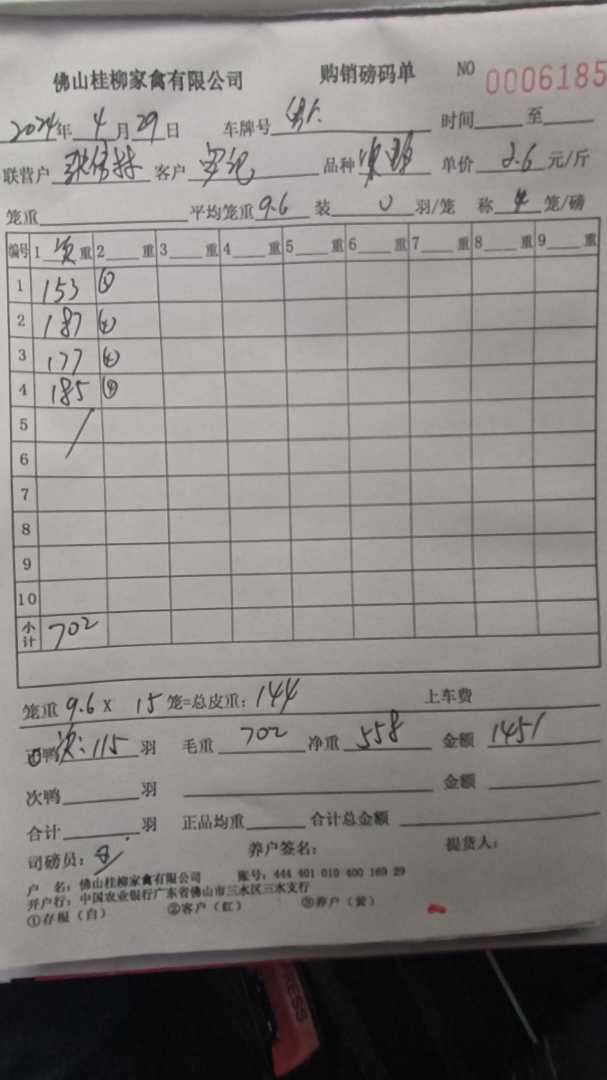 佛山桂柳家禽有限公司 购销磅码单 NO 0006185
2024年 4 月 29 日 车牌号 时间 至
联营户 客户 品种 次鸭 单价 2.6 元/斤
笼重 平均笼重 9.6 装 羽/笼 称 4 笼/磅
编号 1 次 重 2 重 3 重 4 重 5 重 6 重 7 重 8 重 9 重
1 153
2 187
3 177
4 185
5
6
7
8
9
10
小计 702
笼重 9.6 X 15 笼=总皮重: 144 上车费
正鸭 次: 115 羽 毛重 702 净重 558 金额 1451
次鸭 羽 金额
合计 羽 正品均重 合计总金额
司磅员: 养户签名: 提货人:
户 名: 佛山桂柳家禽有限公司 账号: 444 401 010 400 169 29
开户行: 中国农业银行广东省佛山市三水区三水支行
①存根(白) ②客户(红) ③养户(黄)